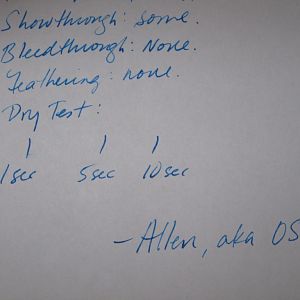 Showthrough: some.
Bleedthrough: None.
Feathering: none.
Dry Test:
1sec 5sec 10sec
-Allen, aka OS